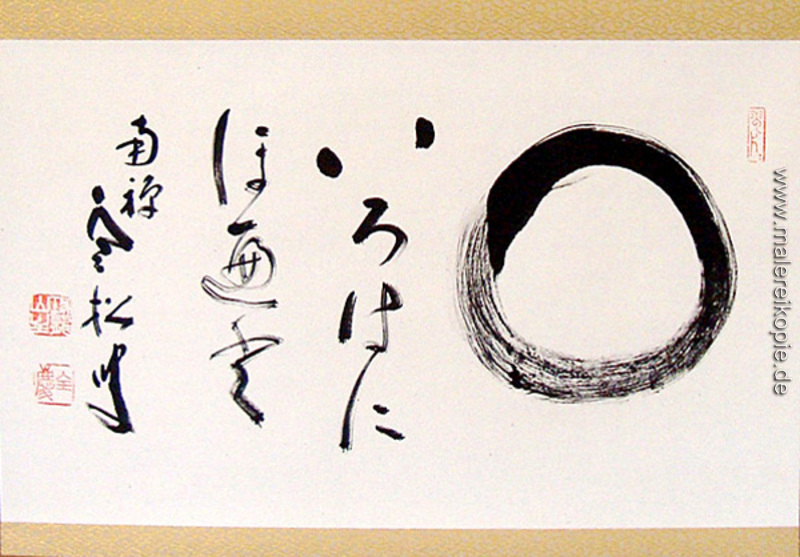 いろはに
ほ遍
南禅
寒松
全慶
www.malereikopie.de